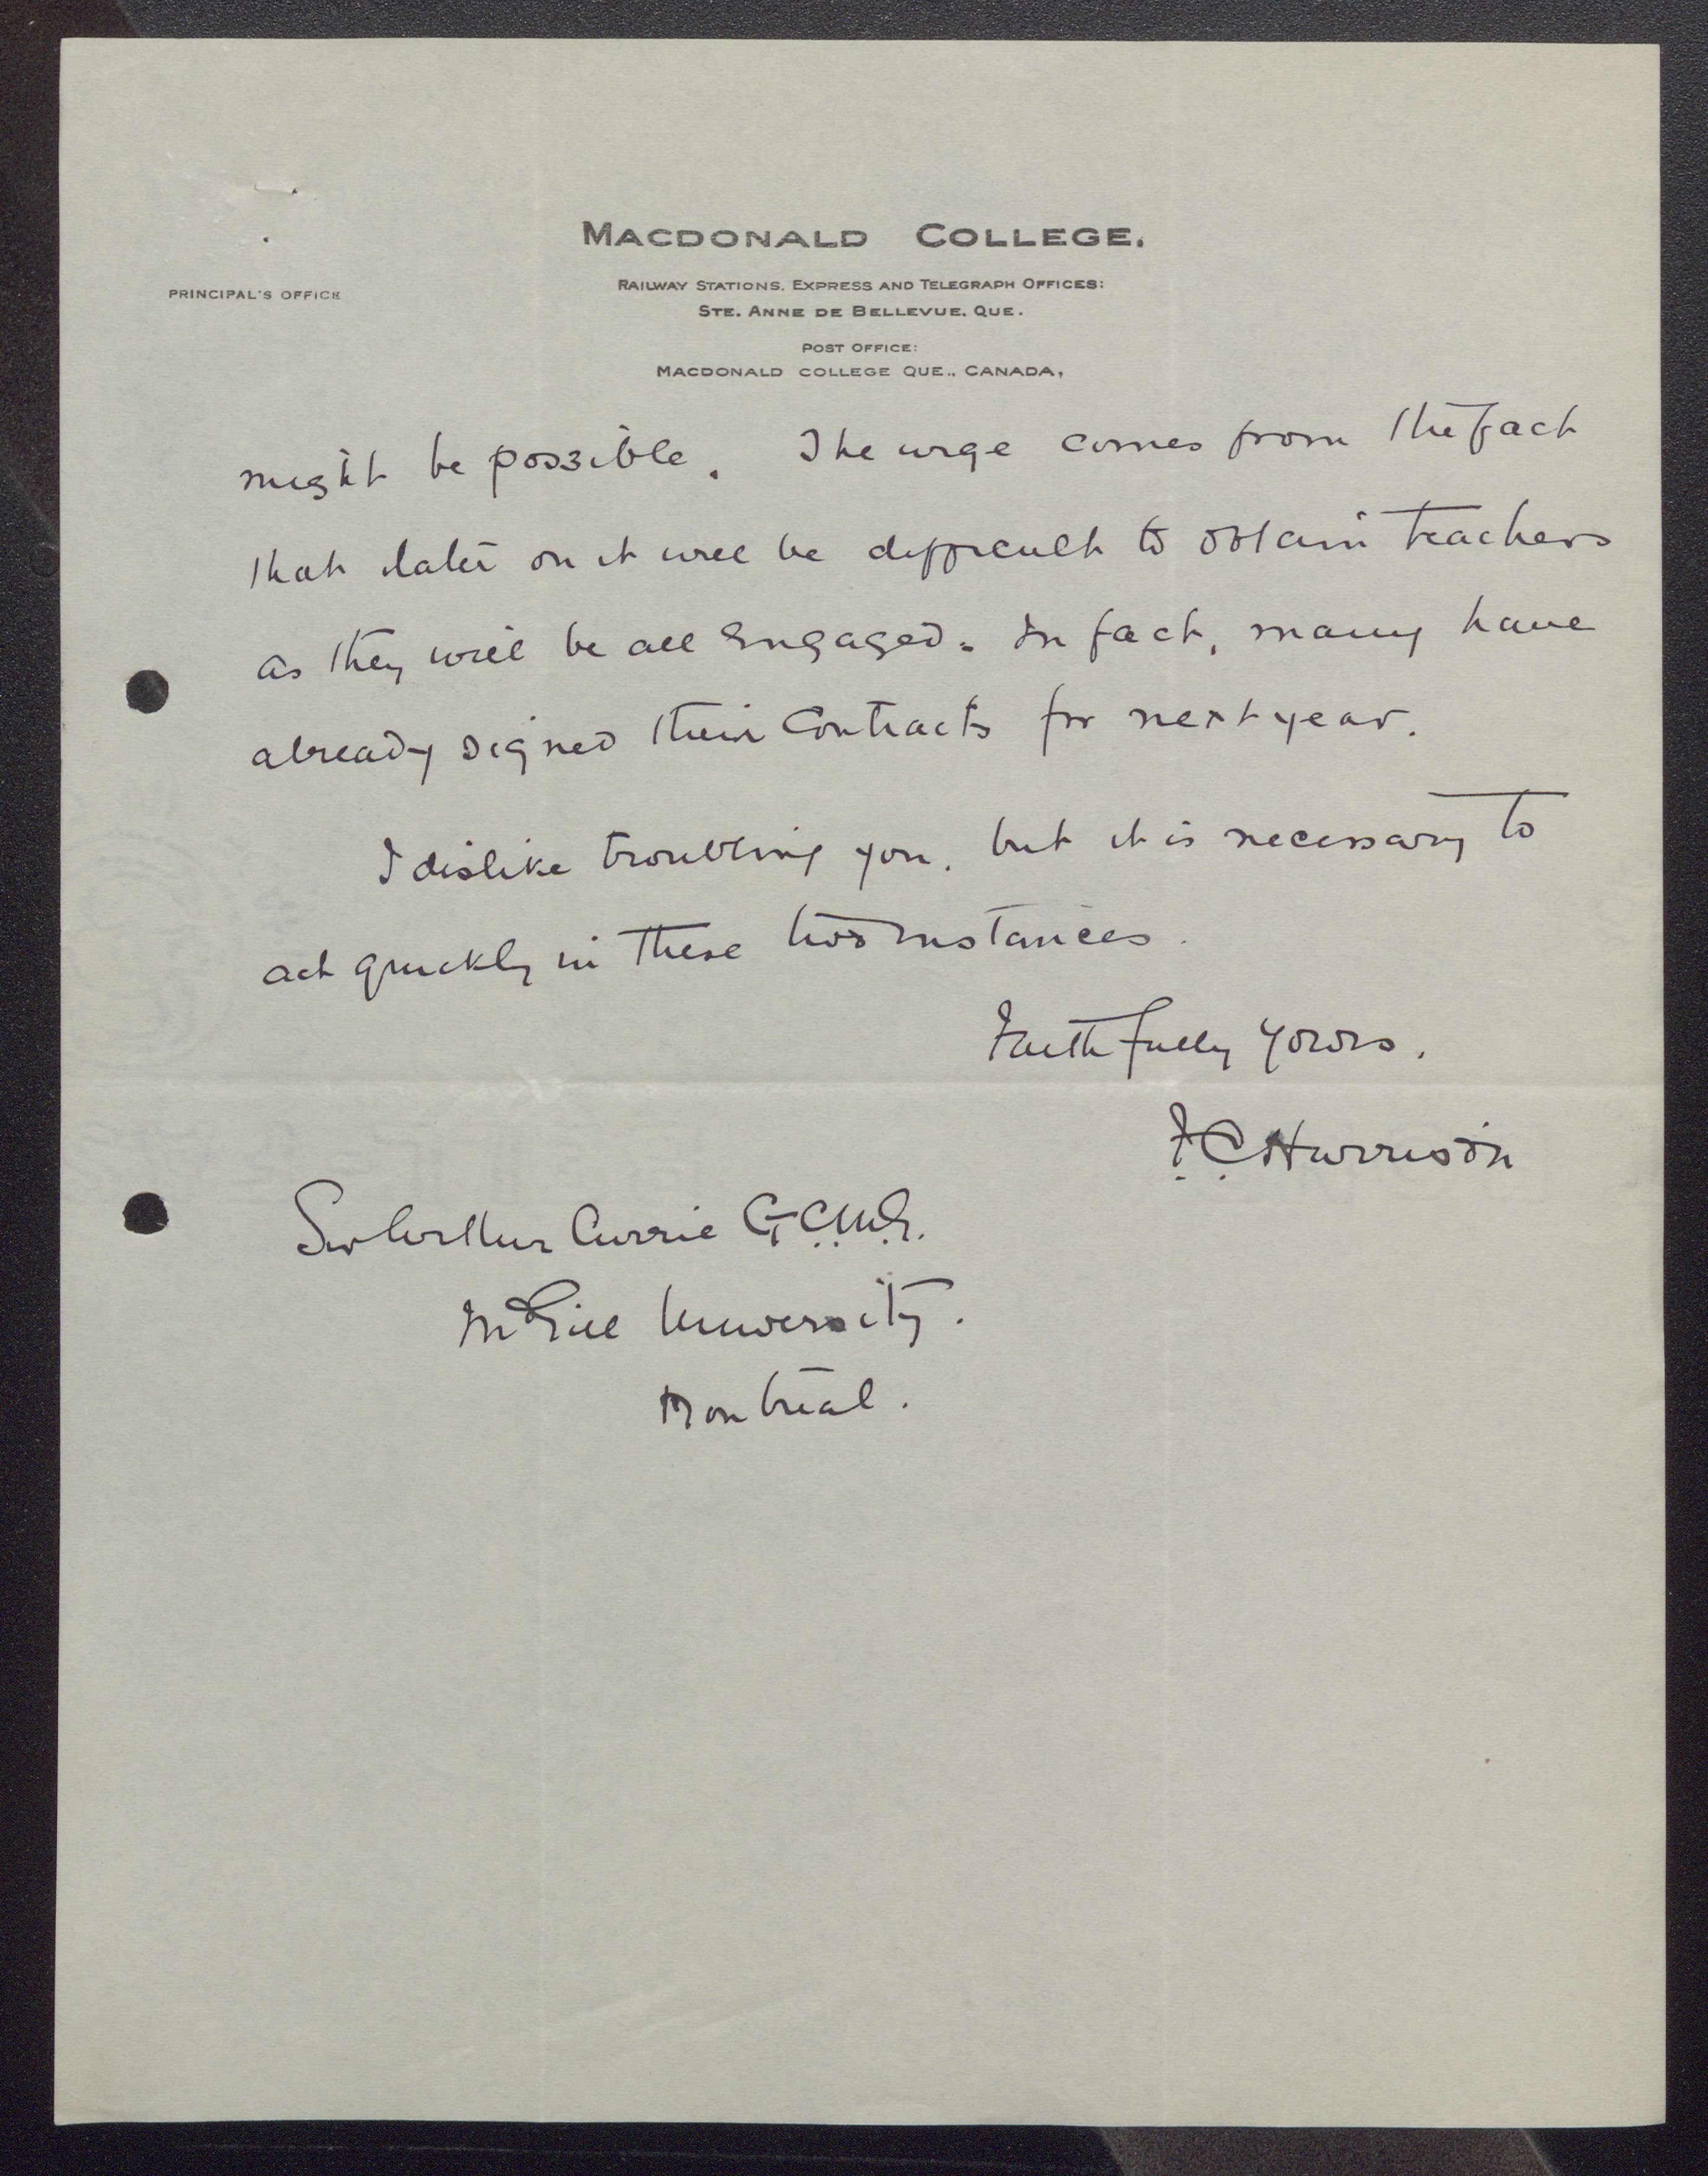 MACDONALD COLLEGE.
RAILWAY STATIONS, EXPRESS AND TELEGRAPH OFFICES:
PRINCIPAL'S OFFICE
STE. ANNE DE BELLEVUE, QUE.
POST OFFICE:
MACDONALD COLLEGE QUE., CANADA,
might be possible. The urge comes from the fact
that later on it will be difficult to obtain teachers
as they will be all engaged. In fact, many have
already signed their contracts for next year.
I dislike troubling you, but it is necessary to
act quickly in these two instances.
Faithfully yours,
F. C. Harrison
Sir Arthur Currie G.C.M.G.
McGill University.
Montreal.